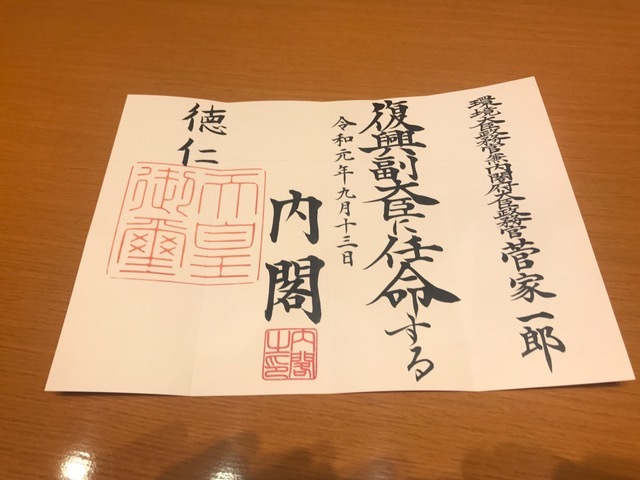 環境大臣政務官兼内閣府大臣政務官菅家一郎
復興副大臣に任命する
令和元年九月十三日
内閣
内閣之印
徳仁
天皇御璽